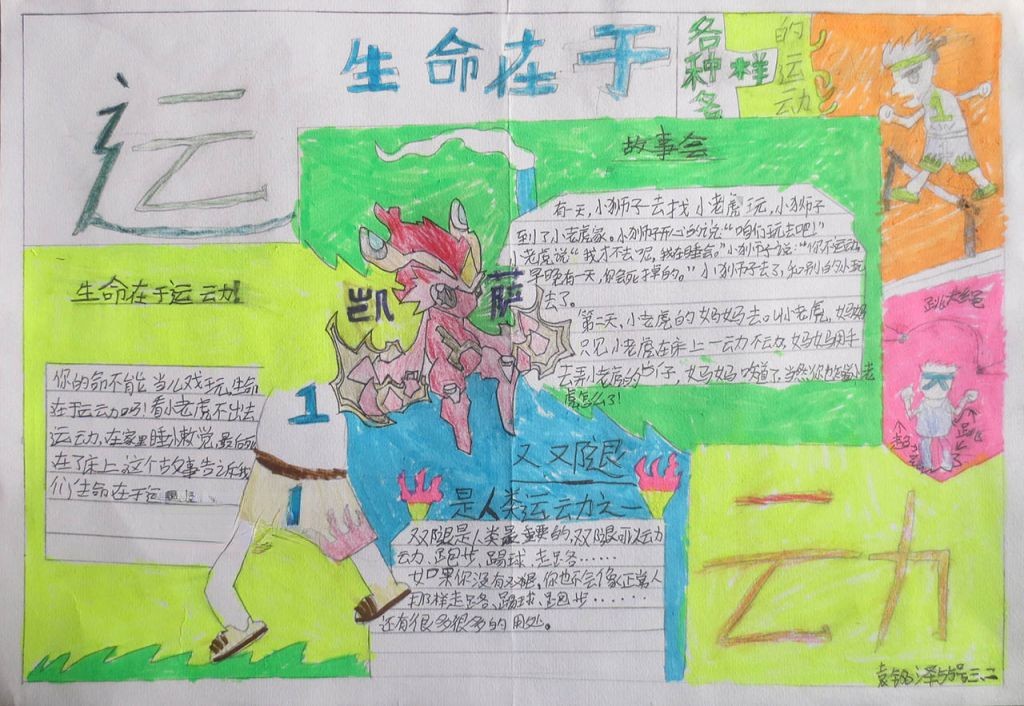 生命在于
运
动
各种各
样
的运动
故事会
有一天,小狮子去找小老虎玩,小狮子
到了小老虎家。小狮子开心的说“咱们玩去吧!”
小老虎说“我才不去呢,我在睡会。”小狮子说:“你不运动,
早晚有一天,你会死掉的。”小狮子去了,和别的外玩
去了。
第二天,小老虎的妈妈去叫小老虎,妈妈
只见小老虎在床上一动不动,妈妈用手
去弄小老虎的
虎怎么了!
凯 萨
生命在于运动
你的命不能当儿戏玩,生命
在于运动吗!看小老虎不出去
运动,在家里睡小教觉,最后
在了床上这个古文事告诉我
们生命在于运
1
1
1
双腿
是人类运动之一
双腿是人类最重要的,双腿可以动
动、跑步、踢球、走路……
如果你没有双腿,你也不会像正常人
那样走路、踢球、跑步……
还有很多很多的用处。
跳大绳
跳
了
袁
泽
号三、二